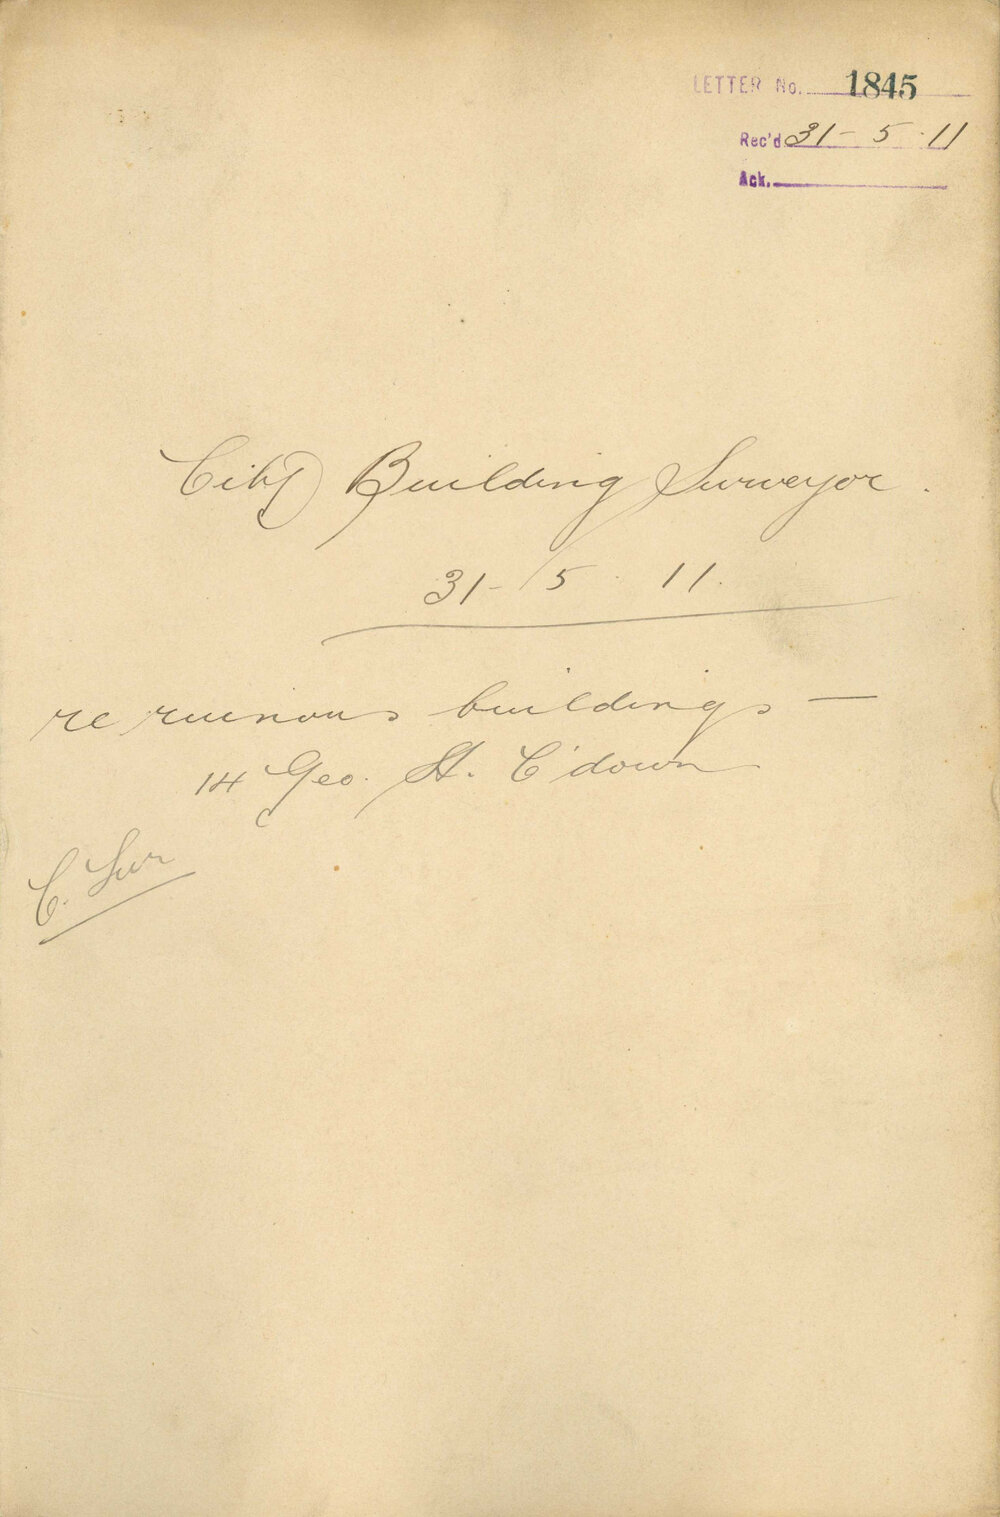 LETTER No. 1845
Rec'd 31-5-11
Ack.
City Building Surveyor.
31-5-11.
re ruinous buildings —
14 Geo. St. C'down
C. Sur